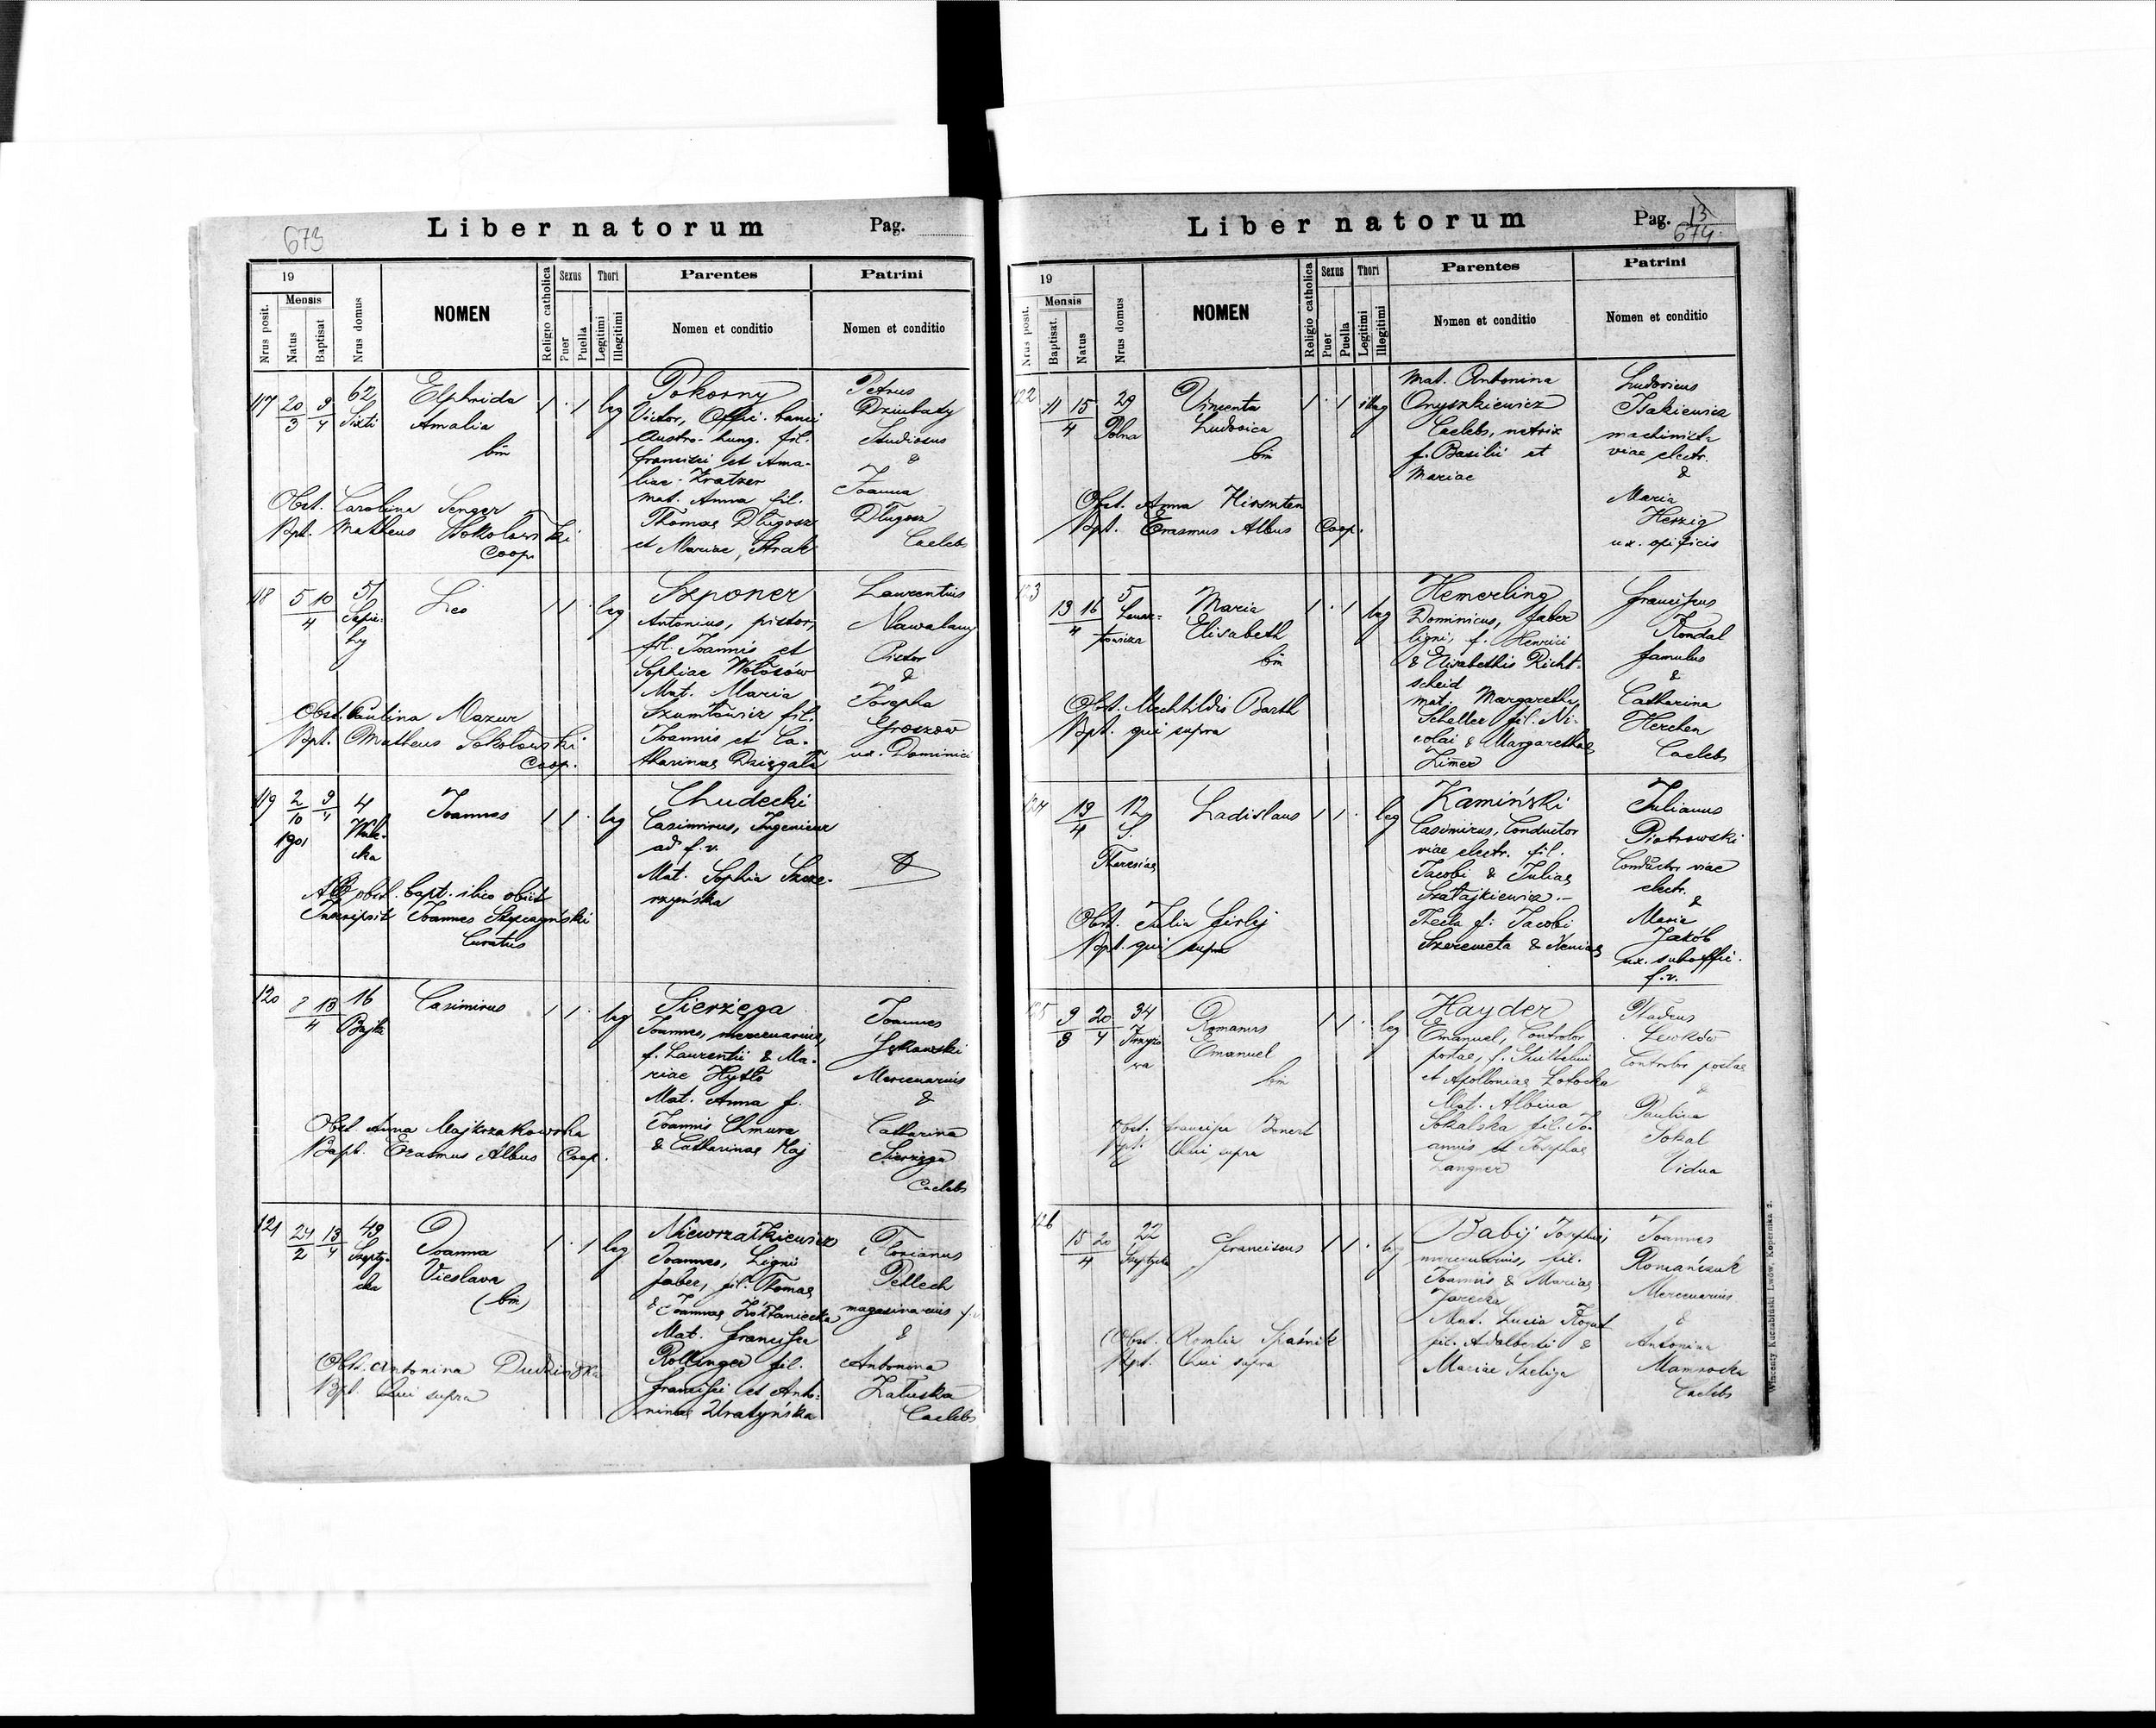 673
Liber natorum
Pag.
19
Nrus posit.
Mensis
Natus
Baptisat
Nrus domus
NOMEN
Religio catholica
Sexus
Puer
Puella
Thori
Legitimi
Illegitimi
Parentes
Nomen et conditio
Patrini
Nomen et conditio
117 20/3 9/4 62 Sixti
Elphrida
Amalia
bin
1 · 1 leg
Pokorny
Victor, Offic. banci
Austro-hung. fil.
Francisci et Ama-
liae Kratzer
mat. Anna fil.
Thomae Długosz
et Mariae, Strak
Petrus
Dziubaty
Studiosus
&
Joanna
Długosz
Caelebs
Obst. Carolina Senger
Bpt. Mattheus Sokołowski
Coop.
118 5 10/4 51 Sapie-
hy
Leo
1 1 · leg
Szponer
Antonius, pictor,
fil. Joannis et
Sophiae Wołosów
Mat. Maria
fil.
Joannis et Ca-
tharinae Dzięgała
Laurentius
Nawalany
Pictor
&
Josepha
Groszów
ux. Dominici
Obst. Paulina Mazur
Bpt. Mattheus Sokołowski
Coop.
119 2/10 1901 9/4 4
Joannes
1 1 · leg
Chudecki
Casimirus, Ingenieur
ad f. v.
Mat. Sophia Szcze-
rzyńska
Ab obst. bapt. ilico obiit
Inscripsit Joannes
Curatus
120 13/4 16 Bajki
Casimirus
1 1 · leg
Sierżęga
Joannes, mercenarius,
f. Laurentii & Ma-
riae Hytło
Mat. Anna f.
Joannis Chmura
& Catharinae Maj
Joannes
Mercenarius
&
Catharina
Sierżęga
Caelebs
Obst. Anna Majkrzakowska
Bapt. Erasmus Albus Coop.
121 24/2 13/4 49 Szepty-
cka
Joanna
Vieslava
(bin)
1 · 1 leg
Niewrzałkiewicz
Joannes, Ligni
faber, fil. Thomae
& Joannae Żółtaniecka
Mat. Francisca
Rollinger fil.
Francisci et Anto-
ninae Uratyńska
Florianus
Pellech
magazinarius
&
Antonina
Załuska
Caelebs
Obst. Antonina Dudzińska
Bpt. Qui supra
Liber natorum
Pag. 13
674
19
Nrus posit.
Mensis
Baptisat.
Natus
Nrus domus
NOMEN
Religio catholica
Sexus
Puer
Puella
Thori
Legitimi
Illegitimi
Parentes
Nomen et conditio
Patrini
Nomen et conditio
122 11 15/4 29 Polna
Vincenta
Ludovica
bin
1 · 1 illeg
Mat. Antonina
Onyszkiewicz
Caelebs, netrix
f. Basilii et
Mariae
Ludovicus
Isakiewicz
machinista
viae electr.
&
Maria
Herzig
ux. opificis
Obst. Anna
Bpt. Erasmus Albus Coop.
123 13 16/4 5
Maria
Elisabeth
bin
1 · 1 leg
Hemerling
Dominicus, faber
ligni, f. Henrici
& Elisabethis Richt-
scheid
mat. Margaretha
Scheller fil. Ni-
colai & Margarethae
Zimer
Franciscus
Kondal
famulus
&
Catharina
Herchen
Caelebs
Obst. Mechtildis Barth
Bpt. qui supra
124 19/4 12 S.
Theresiae
Ladislaus
1 1 · leg
Kamiński
Casimirus, Conductor
viae electr. fil.
Jacobi & Juliae
Szałajkiewicz.-
Thecla f. Jacobi
Szeremeta & Xeniae
Julianus
Piotrowski
Conductor viae
electr.
&
Maria
Jakób
ux. suboffic.
f. v.
Obst. Julia Firlej
Bpt. qui supra
125 9/3 20/4 34
Romanus
Emanuel
bin
1 1 · leg
Hayder
Emanuel, Controlor
postae, f.
et Apolloniae Łotocka
Mat. Albina
Sokalska fil. Jo-
annis et Josephae
Langner
Thadeus
Lewków
Controlor postae
&
Paulina
Sokal
Vidua
Obst. Francisca Bonert
Bpt. Qui supra
126 15 20/4 22 Szeptycka
Franciscus
1 1 · leg
Babij Josephus,
mercenarius, fil.
Joannis & Mariae
Jarecka
Mat. Lucia Kogut
fil. Adalberti &
Mariae Szeliga
Joannes
Romańczuk
Mercenarius
&
Antonina
Caelebs
Obst. Romlia
Bpt. Qui supra
Wincenty Kuczabiński Lwów, Kopernika 2.